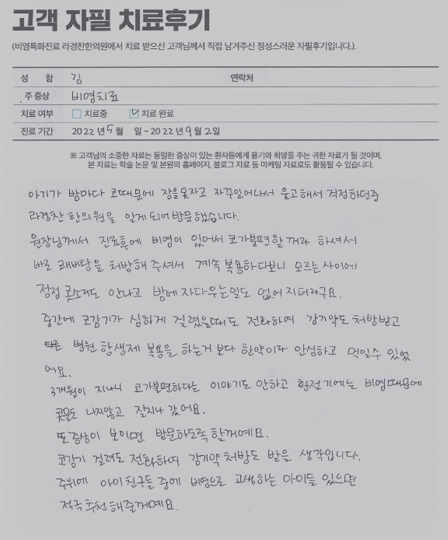 고객 자필 치료후기
(비염특화진료 라경찬한의원에서 치료 받으신 고객님께서 직접 남겨주신 정성스러운 자필후기입니다.)
성 함 김 연락처
주 증상 비염치료
치료 여부 치료중 치료 완료
치료 기간 2022년 5월 일 ~ 2022년 9월 2일
※ 고객님의 소중한 자료는 동일한 증상이 있는 환자들에게 용기와 희망을 주는 귀한 자료가 될 것이며,
본 자료는 학술 논문 및 본원의 홈페이지, 블로그 자료 등 마케팅 자료로도 활용될 수 있습니다.
아기가 밤마다 코때문에 잠을못자고 자꾸일어나서 울고해서 걱정하던중
라경찬 한의원을 알게되어 방문했습니다.
원장님께서 진료후에 비염이 있어서 코가불편할꺼라 하셔서
바로 쾌비탕을 처방해 주셔서 계속 복용하다보니 모르는 사이에
점점 코소리도 안나고 밤에 자다우는일도 없어 지더라구요.
중간에 코감기가 심하게 걸렸을때도 전화하여 감기약도 처방받고
병원 항생제 복용을 하는거 보다 한약이라 안심하고 먹일수 있었
어요.
3개월이 지나니 코가불편하다는 이야기도 안하고 환절기에는 비염때문에
콧물도 나지않고 잘지나 갔어요.
또 증상이 보이면 방문하도록 할께예요.
코감기 걸려도 전화하여 감기약 처방도 받을 생각입니다.
주위에 아이친구들 중에 비염으로 고생하는 아이들 있으면
적극추천 해줄꺼예요.